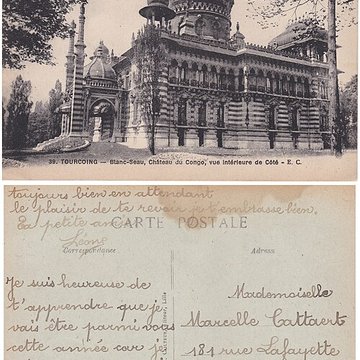 39. TOURCOING — Blanc-Seau, Château du Congo, vue intérieure de Côté - E. C.
toujours bien en attendant
le plaisir de te revoir et t'embrasse bien.
Ta petite amie
CARTE POSTALE
Leone
Correspondance
Adresse
Je suis heureuse de
t'apprendre que je
vais être parmi vous
cette année car je
Mademoiselle
Marcelle Cattaert
181 rue Lafayette